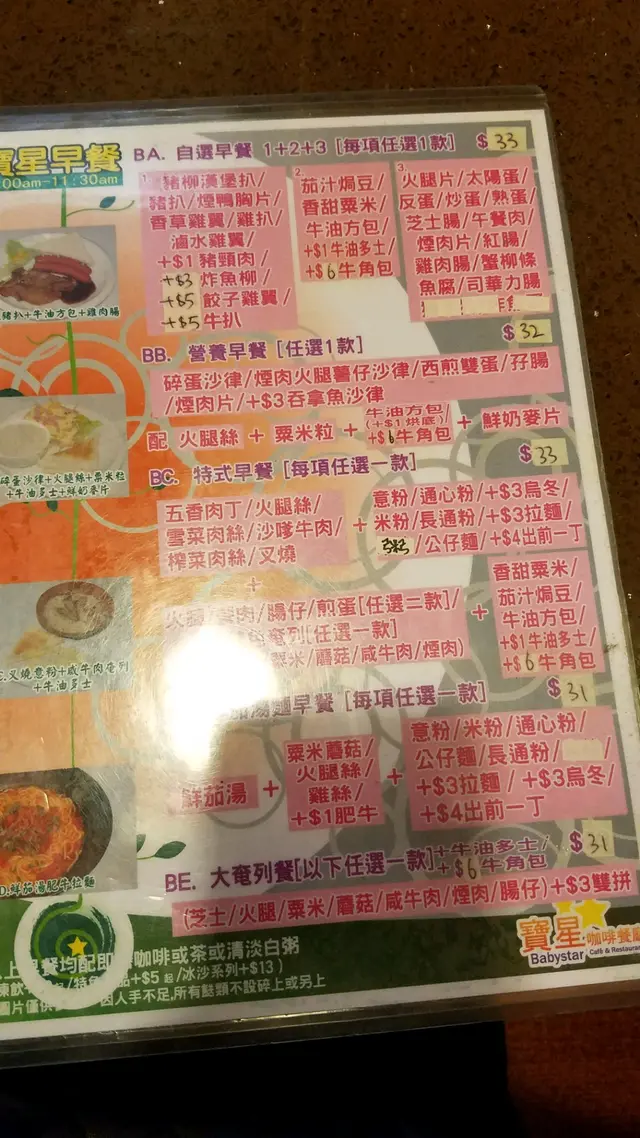 寶星早餐
:00am-11:30am
BA. 自選早餐 1+2+3 [每項任選1款] $33
1.
豬柳漢堡扒/
豬扒/煙鴨胸片/
香草雞翼/雞扒/
滷水雞翼/
+$1豬頸肉/
+$3炸魚柳/
+$5餃子雞翼/
+$5牛扒
2.
茄汁焗豆/
香甜粟米/
牛油方包/
+$1牛油多士/
+$6牛角包
3.
火腿片/太陽蛋/
反蛋/炒蛋/熟蛋/
芝士腸/午餐肉/
煙肉片/紅腸/
雞肉腸/蟹柳條
魚腐/司華力腸
豬扒+牛油方包+雞肉腸
BB. 營養早餐 [任選1款] $32
碎蛋沙律/煙肉火腿薯仔沙律/西煎雙蛋/孖腸
/煙肉片/+$3吞拿魚沙律
配 火腿絲 + 粟米粒 + 牛油方包/(+$1烘底)/+$6牛角包 + 鮮奶麥片
碎蛋沙律+火腿絲+粟米粒
+牛油多士+鮮奶麥片
BC. 特式早餐 [每項任選一款] $33
五香肉丁/火腿絲/
雪菜肉絲/沙嗲牛肉/
榨菜肉絲/叉燒
+
意粉/通心粉/+$3烏冬/
米粉/長通粉/+$3拉麵/
粥/公仔麵/+$4出前一丁
+
火腿/ 肉/腸仔/煎蛋[任選二款]/
奄列[任選一款]
米/蘑菇/咸牛肉/煙肉)
+
香甜粟米/
茄汁焗豆/
牛油方包/
+$1牛油多士/
+$6牛角包
叉燒意粉+咸牛肉奄列
+牛油多士
湯麵早餐 [每項任選一款] $31
鮮茄湯
+
粟米蘑菇/
火腿絲/
雞絲/
+$1肥牛
+
意粉/米粉/通心粉/
公仔麵/長通粉/
+$3拉麵/+$3烏冬/
+$4出前一丁
D.鮮茄湯肥牛拉麵
BE. 大奄列餐[以下任選一款]+牛油多士/+$6牛角包 $31
(芝士/火腿/粟米/蘑菇/咸牛肉/煙肉/腸仔)+$3雙拼
上早餐均配即 咖啡或茶或清淡白粥
凍飲 /特 品+$5起/冰沙系列+$13)
圖片僅供 因人手不足,所有麩類不設碎上或另上
寶星咖啡餐廳
Babystar Café & Restaurant